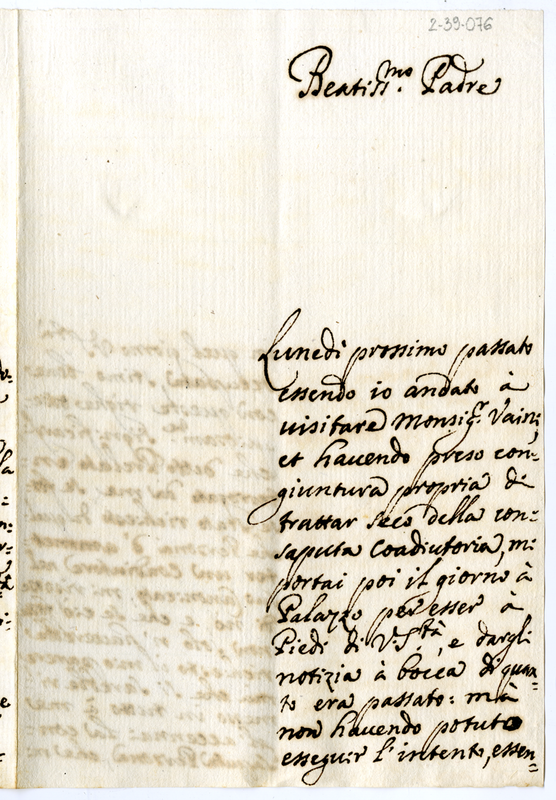 2-39-076
Beatiss.mo Padre
Lunedi prossimo passato
essendo io andato à
visitare Monsig.r Vaini,
et havendo preso con-
giuntura propria di
trattar seco della con-
saputa Coadiutoria, mi
portai poi il giorno à
Palazzo per esser à
Piedi di V. S.tà, e dargli
notizia à bocca di quan-
to era passato: mà
non havendo potuto
esseguir l'intento, essen-